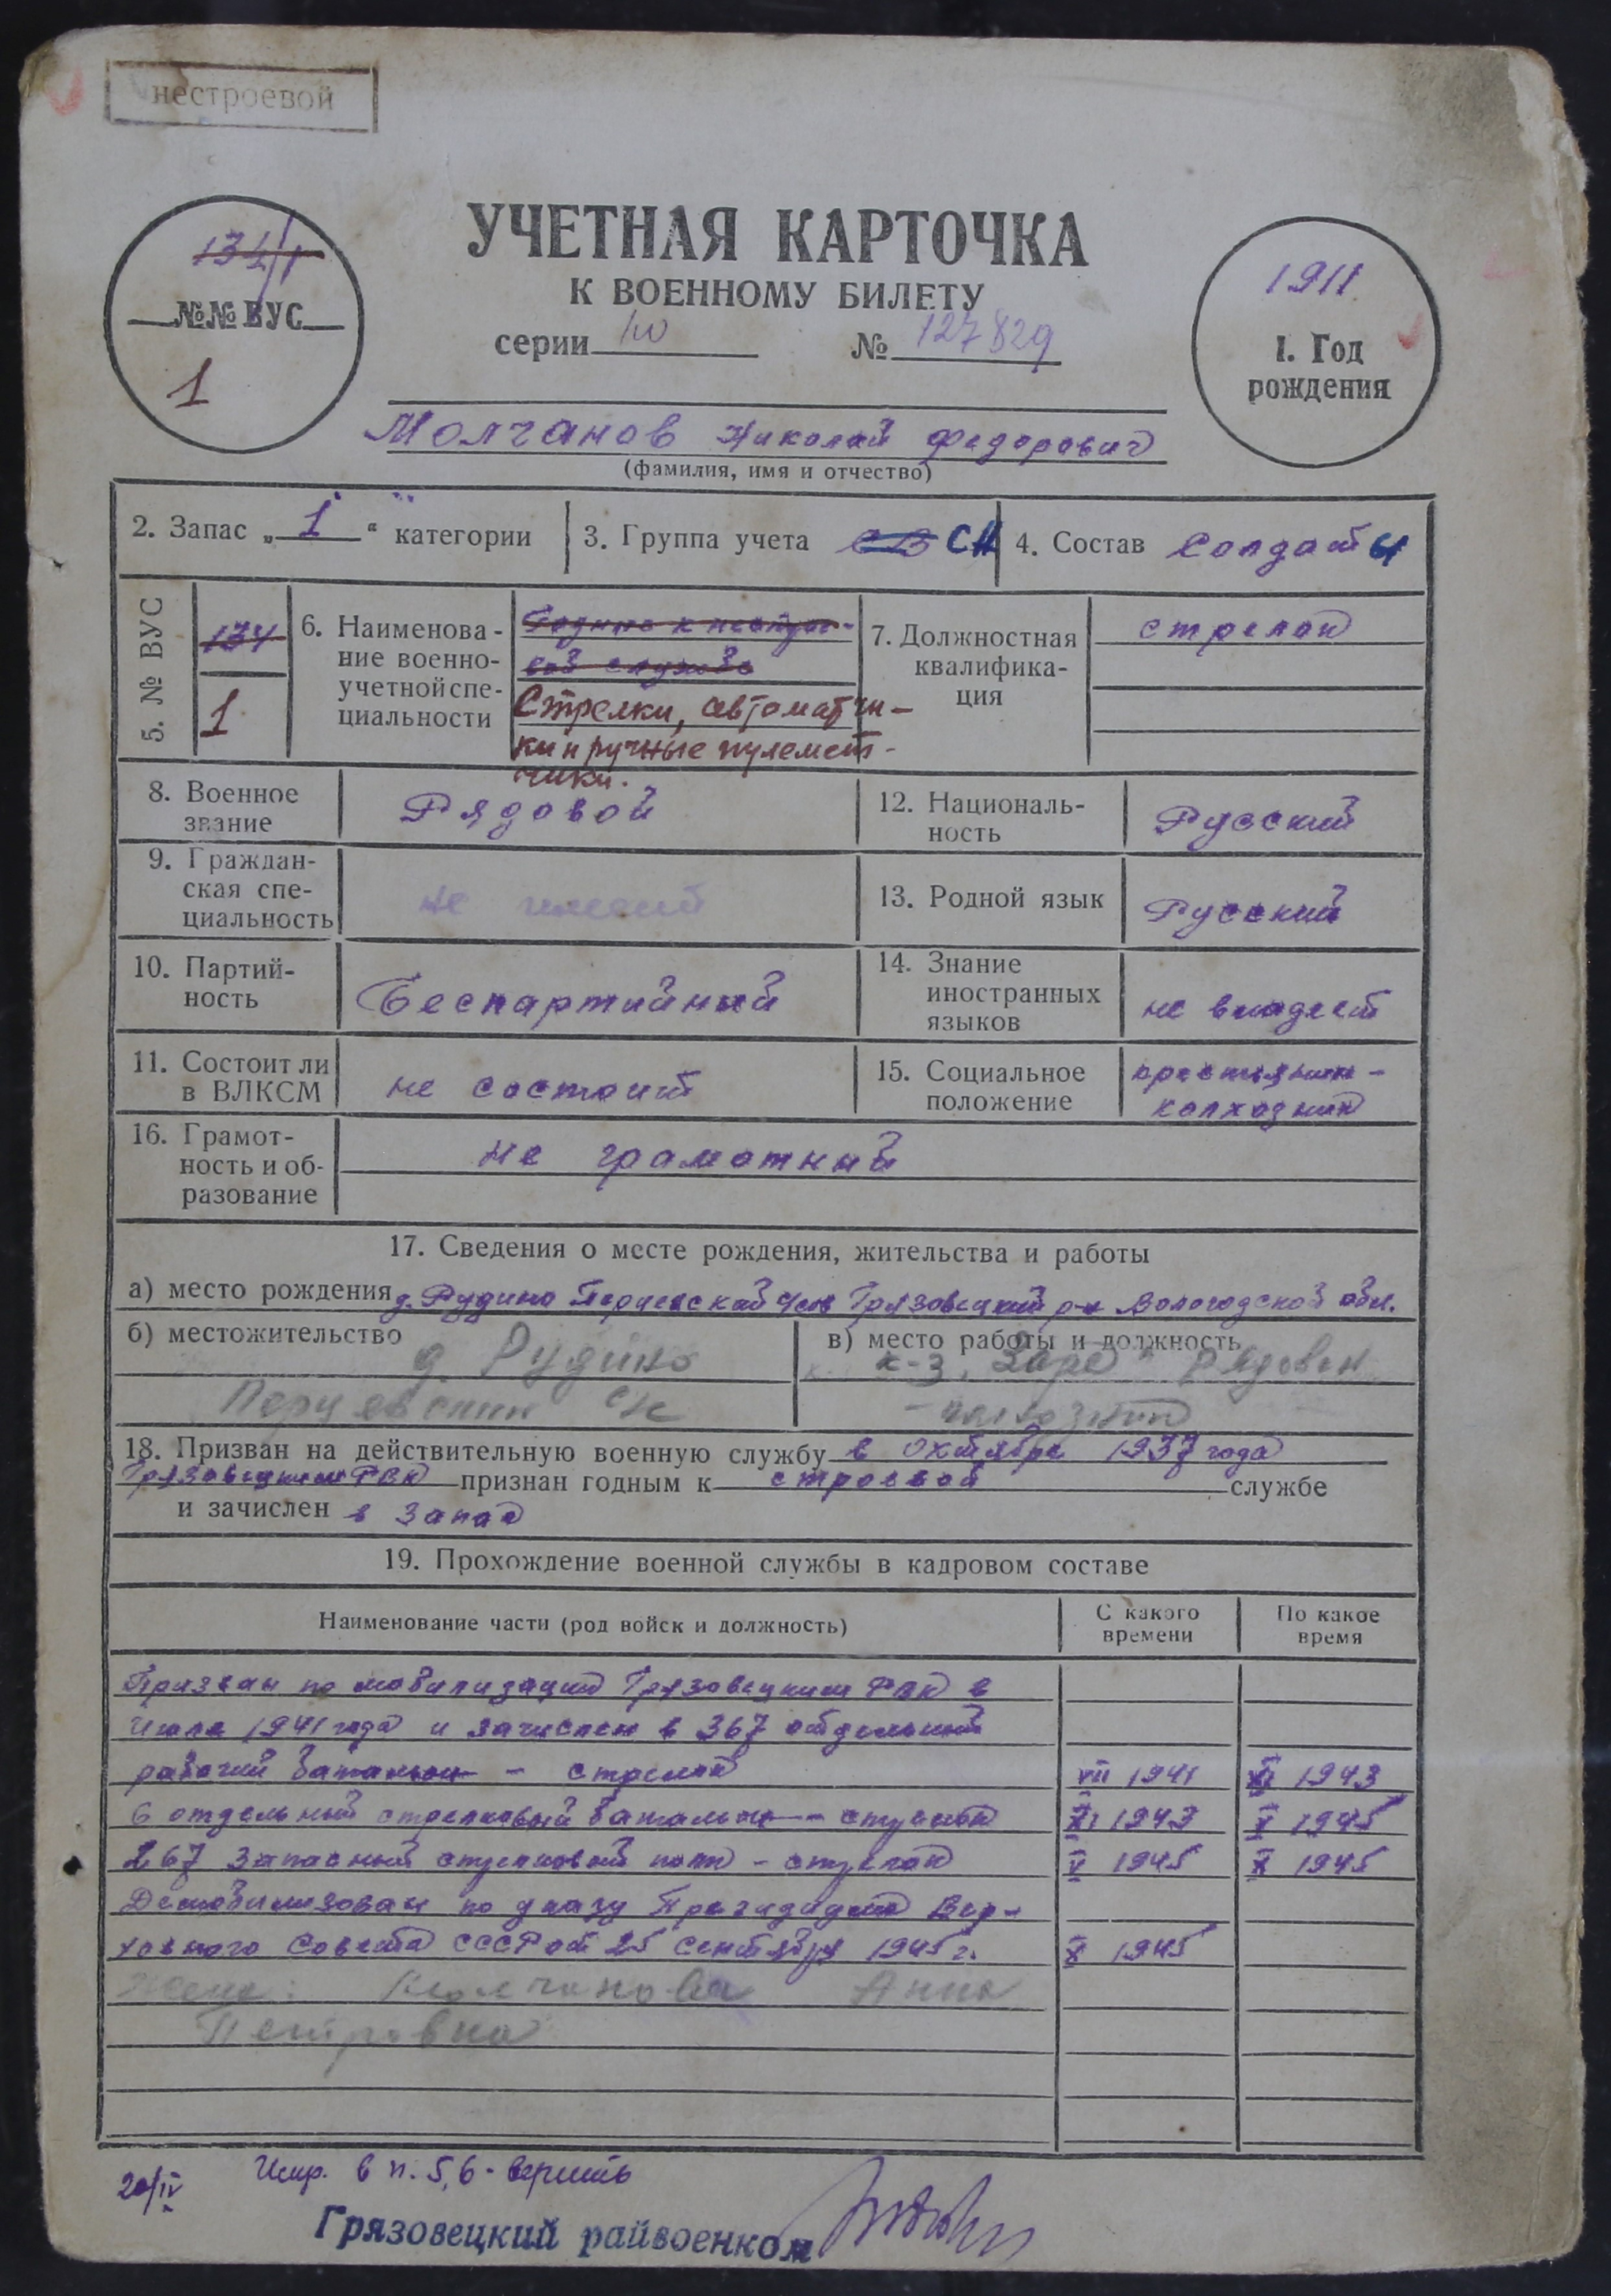 нестроевой
УЧЕТНАЯ КАРТОЧКА
К ВОЕННОМУ БИЛЕТУ
134/1
№№ ВУС
1
серии № 127829
1911
1. Год
рождения
Молчанов Николай Федорович
(фамилия, имя и отчество)
2. Запас „1“ категории
3. Группа учета СН
4. Состав Солдаты
5. № ВУС
134
1
6. Наименова-
ние военно-
учетной спе-
циальности
Годный к нестрое-
вой службе
Стрелки, автоматчи-
ки и ручные пулемет-
чики.
7. Должностная
квалифика-
ция
стрелок
8. Военное
звание
Рядовой
12. Националь-
ность
Русский
9. Граждан-
ская спе-
циальность
не имеет
13. Родной язык
Русский
10. Партий-
ность
Беспартийный
14. Знание
иностранных
языков
не владеет
11. Состоит ли
в ВЛКСМ
не состоит
15. Социальное
положение
крестьянин-
колхозник
16. Грамот-
ность и об-
разование
не грамотный
17. Сведения о месте рождения, жительства и работы
а) место рождения д. Рудино Грязовецкий р-н Вологодской обл.
б) местожительство
д. Рудино
в) место работы и должность
к-з „Заря“ рядовой
колхозник
18. Призван на действительную военную службу в октябре 1937 года
Грязовецким РВК признан годным к строевой службе
и зачислен в запас
19. Прохождение военной службы в кадровом составе
Наименование части (род войск и должность)
С какого
времени
По какое
время
Призван по мобилизации Грязовецким РВК в
Июле 1941 года и зачислен в 367 отдельный
рабочий батальон - стрелок VII 1941 XI 1943
6 отдельный стрелковый батальон - стрелок XI 1943 V 1945
267 Запасный стрелковый полк - стрелок V 1945 X 1945
Демобилизован по указу Президиума Вер-
ховного Совета СССР от 25 сентября 1945 г. X 1945
Жена: Молчанова Анна
Петровна
20/IV
Испр. в п. 5,6 - верить
Грязовецкий райвоенком